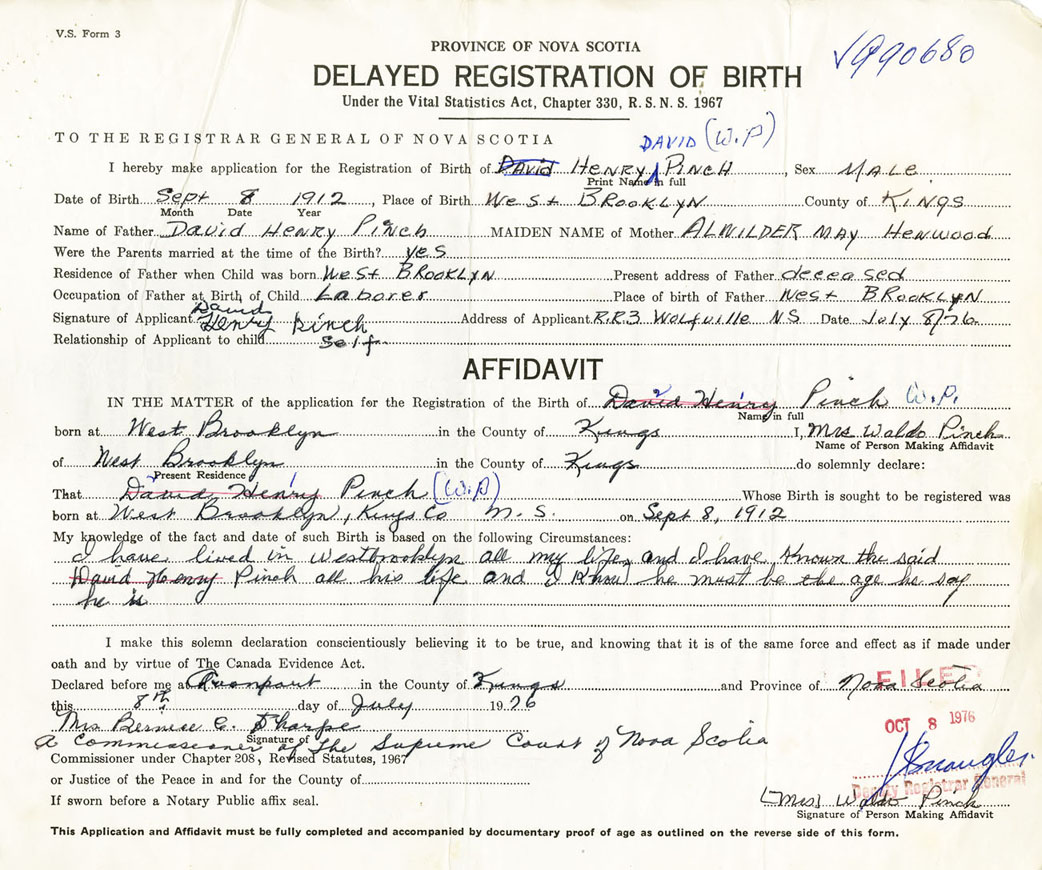 V.S. Form 3
PROVINCE OF NOVA SCOTIA
990680
DELAYED REGISTRATION OF BIRTH
Under the Vital Statistics Act, Chapter 330, R.S.N.S. 1967
TO THE REGISTRAR GENERAL OF NOVA SCOTIA
DAVID (W.P)
I hereby make application for the Registration of Birth of David HENRY PINCH, Sex MALE
Print Name in full
Date of Birth Sept 8 1912, Place of Birth West BROOKLYN County of KINGS
Month Date Year
Name of Father David HENRY PINCH MAIDEN NAME of Mother ALWILDER MAY Henwood
Were the Parents married at the time of the Birth? yes
Residence of Father when Child was born West BROOKLYN Present address of Father deceased
Occupation of Father at Birth of Child Laborer Place of birth of Father West BROOKLYN
David
Signature of Applicant Henry Pinch Address of Applicant R.R.3 Wolfville N S Date July 8/76
Relationship of Applicant to child Self
AFFIDAVIT
IN THE MATTER of the application for the Registration of the Birth of David Henry Pinch W.P.
Name in full
born at West Brooklyn in the County of Kings I, Mrs Waldo Pinch
Name of Person Making Affidavit
of West Brooklyn in the County of Kings do solemnly declare:
Present Residence
That David Henry Pinch (W.P) Whose Birth is sought to be registered was
born at West Brooklyn, Kings Co N.S. on Sept 8, 1912
My knowledge of the fact and date of such Birth is based on the following Circumstances:
I have lived in Westbrooklyn all my life, and I have known the said
David Henry Pinch all his life and I know he must be the age he say
he is
I make this solemn declaration conscientiously believing it to be true, and knowing that it is of the same force and effect as if made under
oath and by virtue of The Canada Evidence Act.
Declared before me at Avonport in the County of Kings and Province of Nova Scotia
FILED
this 8th day of July 1976
OCT 8 1976
Mrs Bernice E. Sharpe
Signature of
a Commissioner of The Supreme Court of Nova Scotia
Commissioner under Chapter 208, Revised Statutes, 1967
or Justice of the Peace in and for the County of
Deputy Registrar General
If sworn before a Notary Public affix seal.
(Mrs) Waldo Pinch
Signature of Person Making Affidavit
This Application and Affidavit must be fully completed and accompanied by documentary proof of age as outlined on the reverse side of this form.